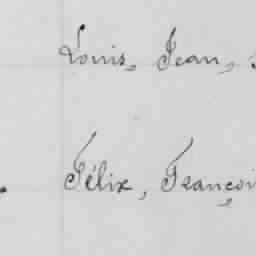 Louis, Jean,
Félix, Françoi